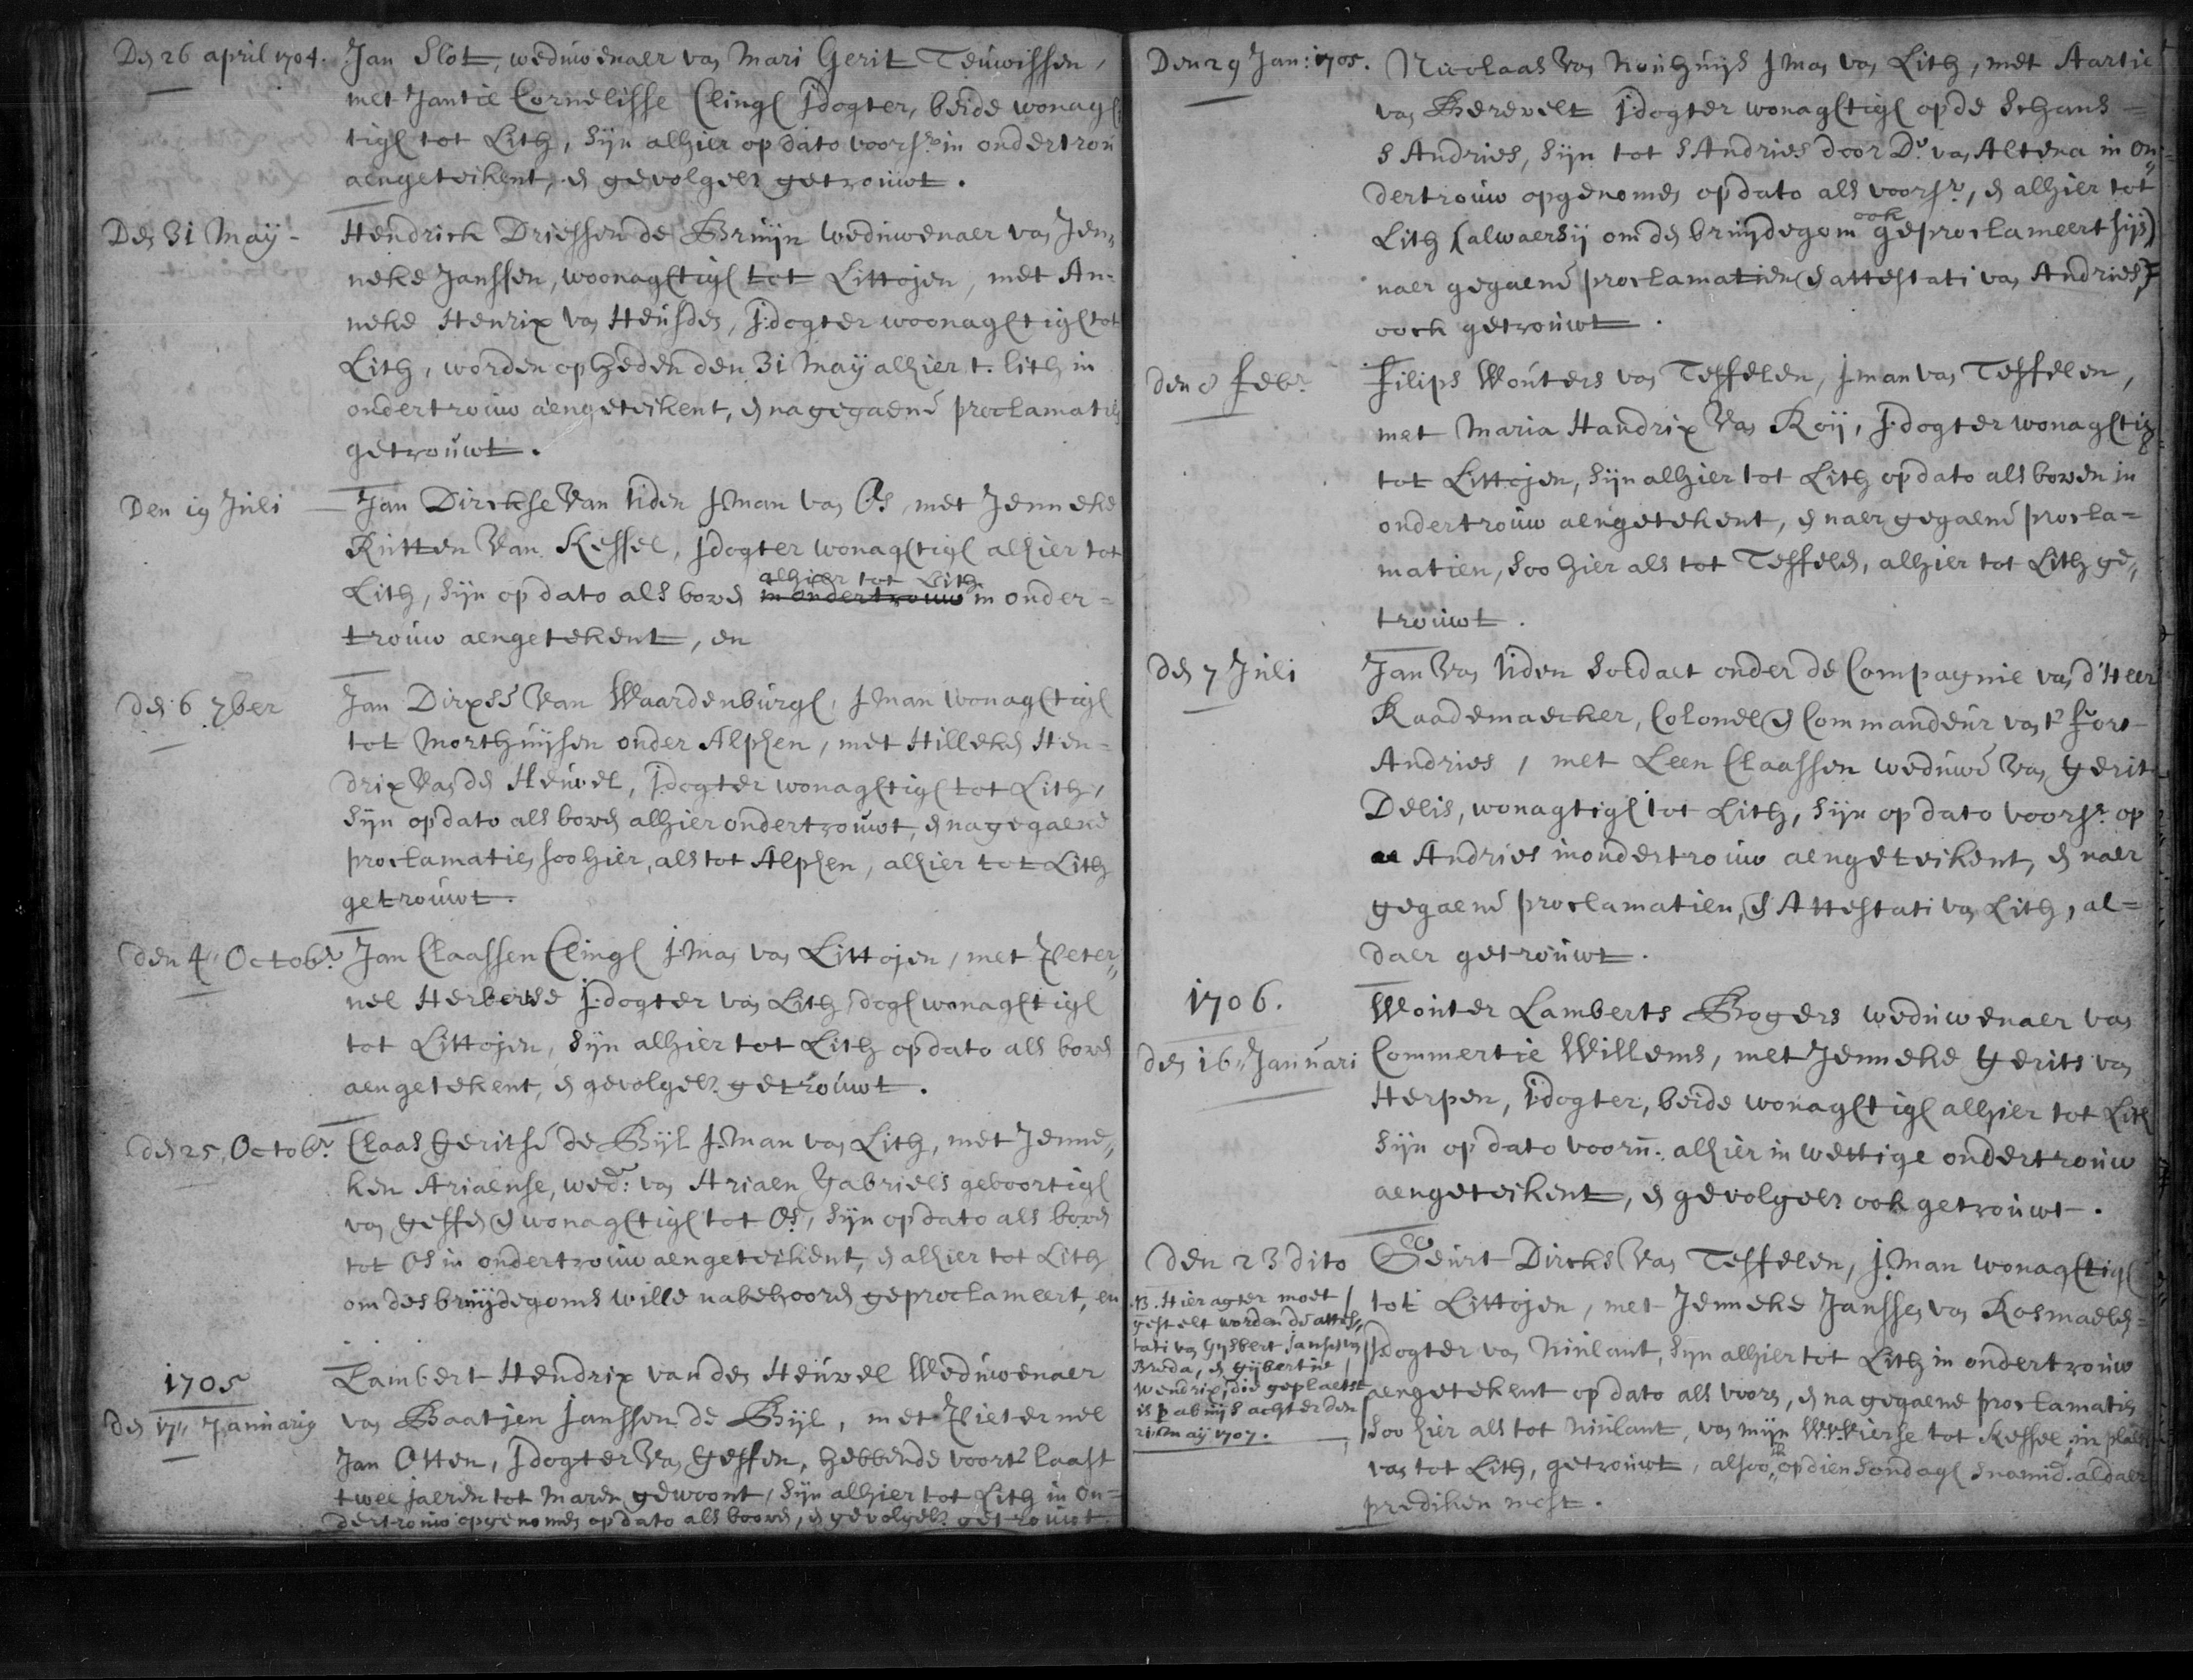 Den 26 april 1704. Jan Slot, weduwenaer van Mari Gerit Teuwissen,
met Jantie Cornelisse Clingh J:dogter, beide wonagh
tigh tot Lith, sijn alhier op dato voorsr. in ondertrou
aengeteikent, en gevolgelk getrouwt.
Den 31 Maÿ - Hendrick Driessen de Bruijn weduwenaer van Jen„
neke Janssen, woonaghtigh tot Littojen, met An-
neke Henrix van Heusden, J:dogter woonaghtigh tot
Lith, worden op heden den 31 Maÿ alhier t. lith in
ondertrouw aengeteikent, en na gegaene proclamatien
getrouwt.
Den 19 Juli Jan Dirckse Van Uden J:man van Os, met Jenneke
Rutten Van Kessel, J:dogter wonaghtigh alhier tot
Lith, sijn op dato als boven in ondertrouw alhier tot Lith in onder=
trouw aengetekent, en
den 6 7ber Jan Dirxse Van Waardenburgh, J:man wonaghtigh
tot Morthuijsen onder Alphen, met Hilleken Hen=
drix van den Heuvel, J:dogter wonaghtigh tot Lith,
sijn op dato als boven alhier ondertrouwt, en na gegaene
proclamatien soo hier, als tot Alphen, alhier tot Lith
getrouwt.
den 4„ Octobr. Jan Claassen Clingh J:man van Littojen, met Peter„
nel Herberse J:dogter van Lith, dogh wonaghtigh
tot Littojen, sijn alhier tot Lith op dato als boven
aengetekent, en gevolgelk getrouwt.
den 25 Octobr. Claas Geritse de Bijl J:man van Lith, met Jenne„
ken Ariaense, wed: van Ariaen Gabriels geboortigh
van Geffen en wonaghtigh tot Os, sijn op dato als boven
tot Os in ondertrouw aengeteikent, en alhier tot Lith
om des bruijdegoms wille na behooren geproclameert, en
1705 Lambert Hendrix van den Heuvel Weduwenaer
den 17„ Januarij van Baatjen Janssen de Bijl, met Pieternel
Jan Otten, J:dogter van Geffen, hebbende voor't laast
twee jaeren tot Maren gewoont, sijn alhier tot Lith in on=
dertrouw opgenomen op dato als boven, en gevolgelk getrouwt.
Den 29 Jan: 1705. Nicolaas van Nouhuijs J:man van Lith, met Aartie
van Berevelt J:dogter wonaghtigh op de Schans =
S Andries, sijn tot S Andries door Ds. van Altena in on=
dertrouw opgenomen op dato als voorsr., en alhier tot
Lith (alwaer sij om den bruijdegom ook geproclameert sijn)
naer gegaene proclamatien en attestati van Andries,
oock getrouwt.
den 8 Febr. Filips Wouters van Teffelen, J:man van Teffelen,
met Maria Handrix Van Roij, J:dogter wonaghtig
tot Littojen, sijn alhier tot Lith op dato als boven in
ondertrouw aengetekent, en naer gegaene procla=
matien, soo hier als tot Teffelen, alhier tot Lith ge„
trouwt.
den 7 Juli Jan Van Uden Soldaet onder de Compagnie van d'Heer
Raademaecker, Colonel en Commandeur van 't Fort
Andries, met Leen Claassen weduwe van Gerit
Delis, wonagtigh tot Lith, sijn op dato voorsr. op
Andries in ondertrouw aengeteikent, en naer
gegaene proclamatien, en Attestati van Lith, al=
daer getrouwt.
1706. Wouter Lamberts Bogers weduwenaer van
den 16„ Januari Commertie Willems, met Jenneke Gerits van
Herpen, J:dogter, beide wonaghtigh alhier tot Lith
sijn op dato voorn: alhier in wettige ondertrouw
aengeteikent, en gevolgelk ook getrouwt.
den 23 dito Geurt Dircks Van Teffelen, J:man wonaghtigh
tot Littojen, met Jenneke Janssen van Rosmaelen=
J:dogter van Niulant, sijn alhier tot Lith in ondertrouw
aengetekent op dato als vooren, en na gegaene proclamatien
soo hier als tot Niulant, van mijn tot Kessel, in plaets
van tot Lith, getrouwt, alsoo ik op dien Sondagh snamid. aldaer
prediken most.
NB. Hier agter moet
gestelt worden de attes„
tati van Gijsbert Jansen van
Breda, en Gijbertie
Wendrix, die geplaetst
is p abuijs achter den
21 Maÿ 1707.